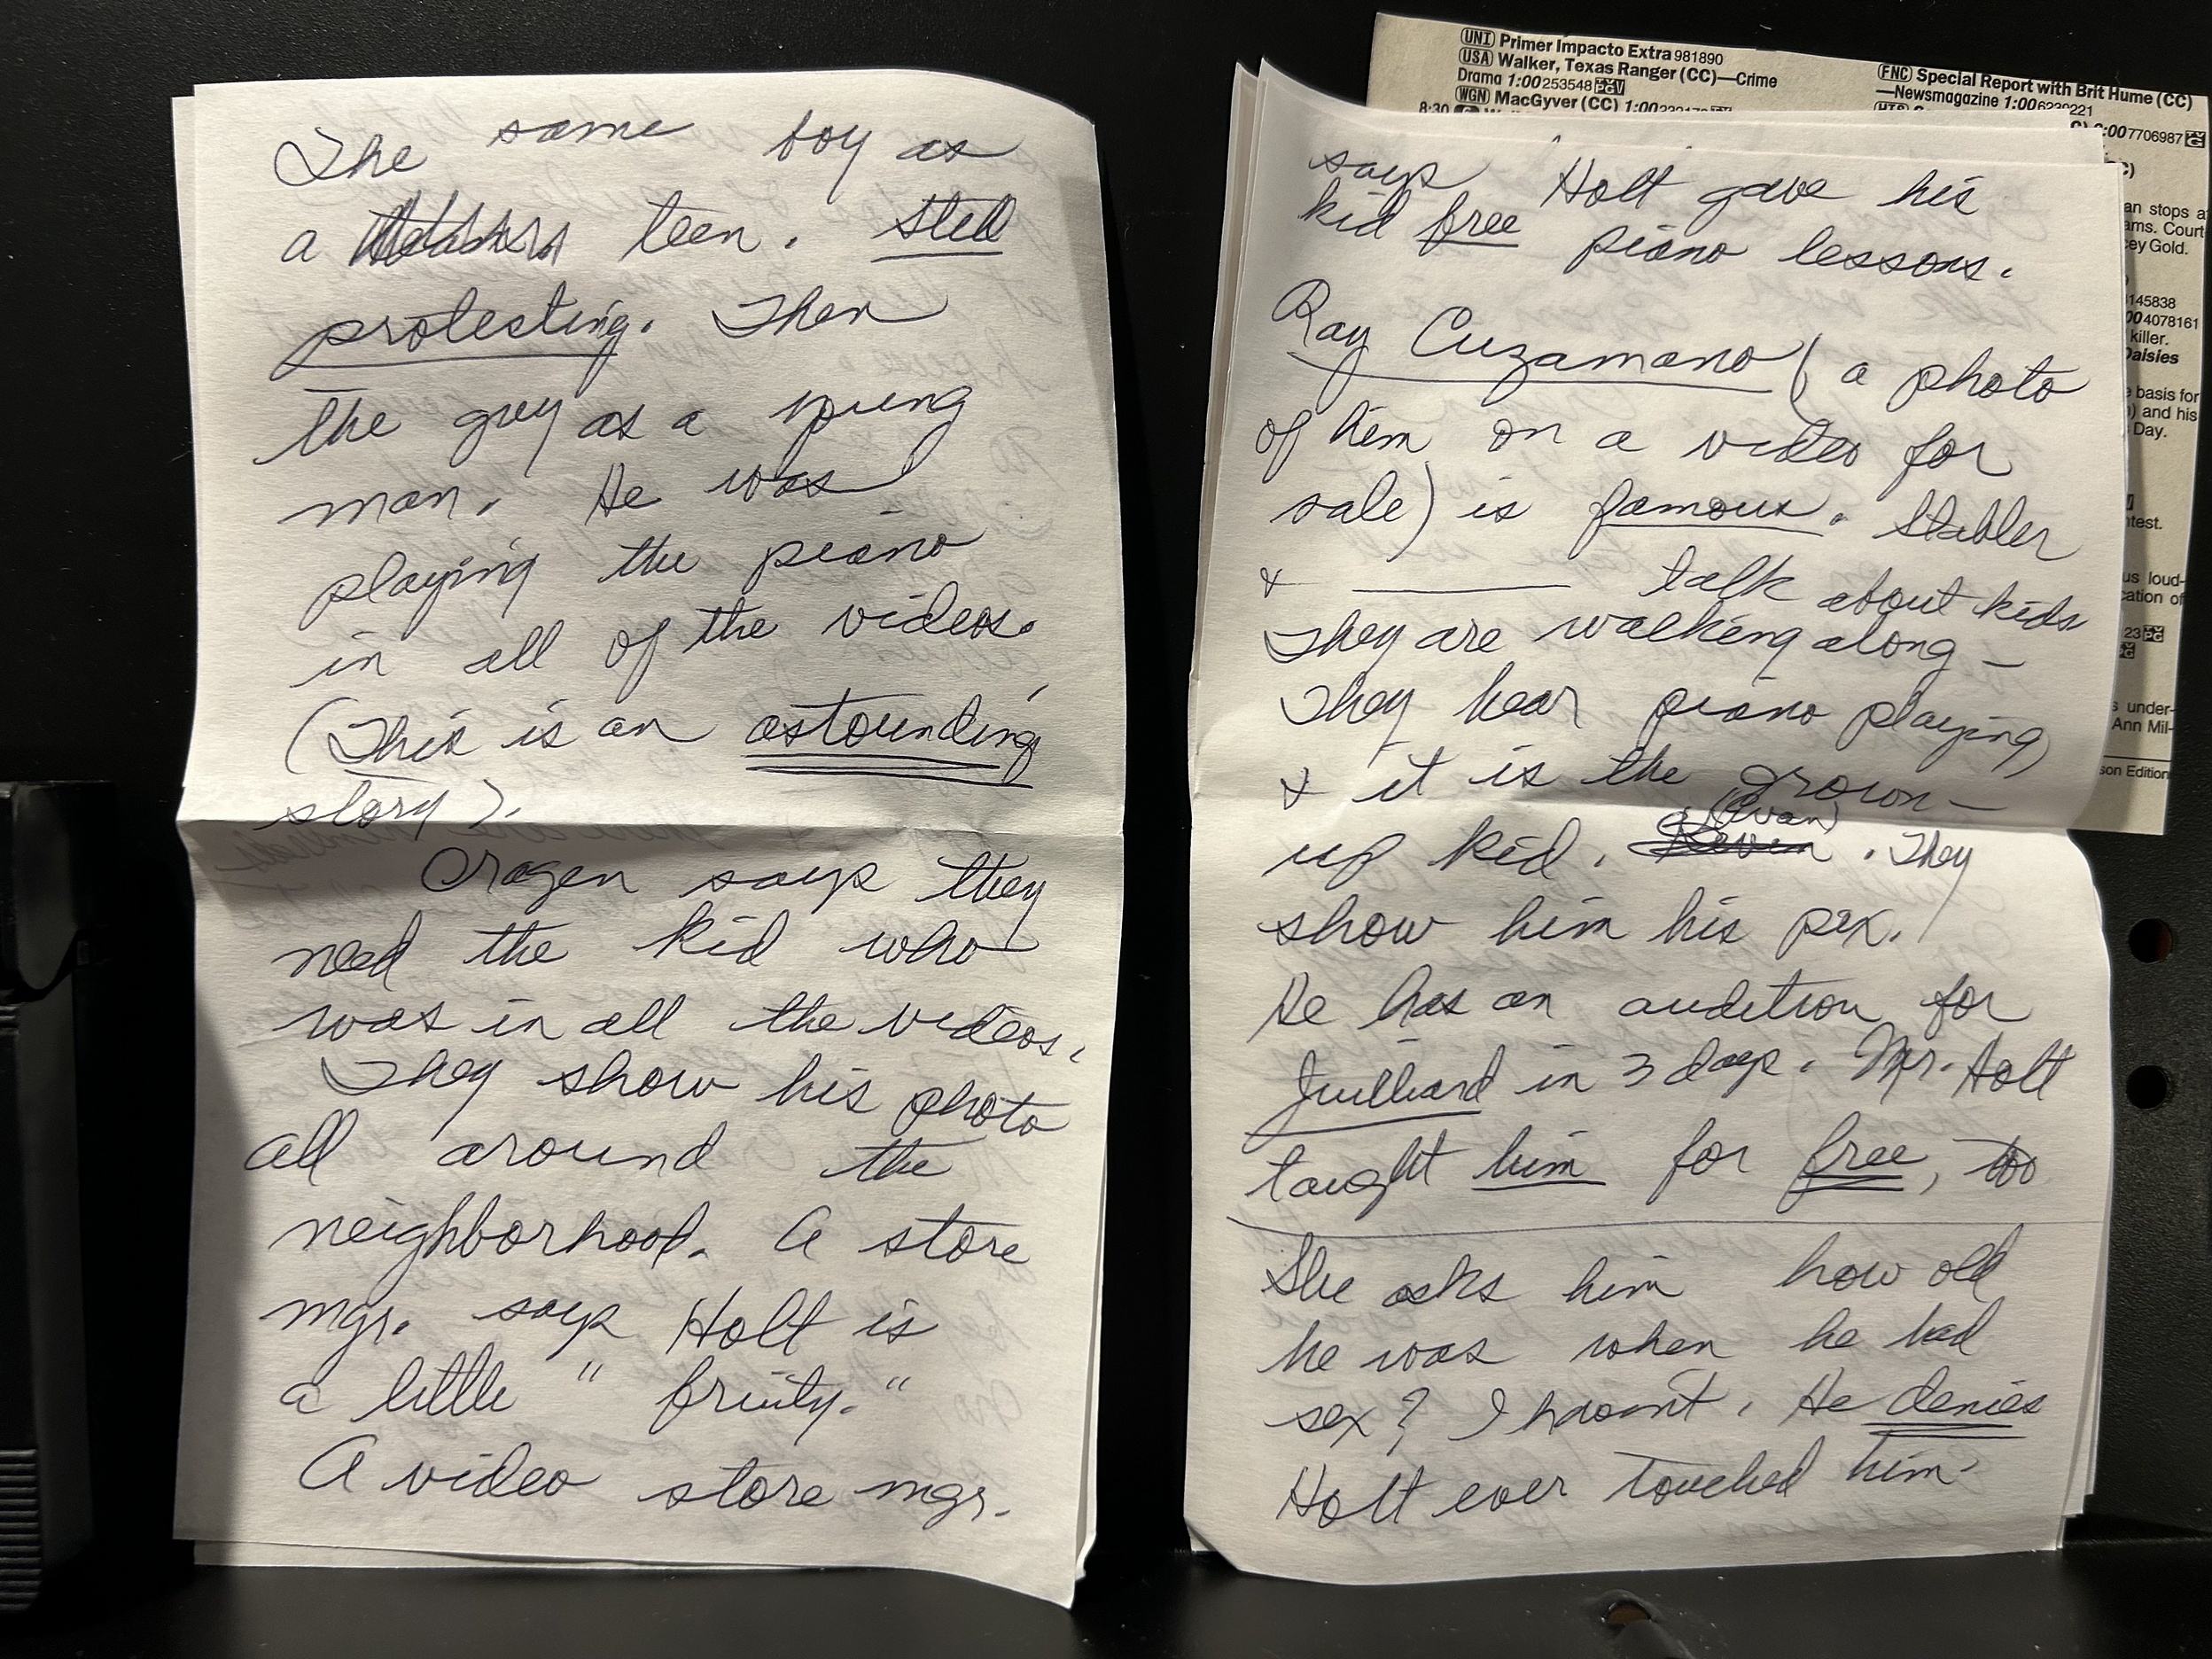 The same boy as
a teen. Still
protesting. Then
the guy as a young
man. He was
playing the piano
in all of the videos.
(This is an astounding
story).
Cragen says they
need the kid who
was in all the videos.
They show his photo
all around the
neighborhood. A store
mgr. says Holt is
a little "fruity."
A video store mgr.
says Holt gave his
kid free piano lessons.
Ray Cuzamano (a photo
of him on a video for
sale) is famous. Stabler
& ______ talk about kids
They are walking along -
They hear piano playing
& it is the grown-
up kid. Kevin (Evan). They
show him his pix.
He has an audition for
Juilliard in 3 days. Mr. Holt
taught him for free, too
She asks him how old
he was when he had
sex? I haven't. He denies
Holt ever touched him.
(UNI) Primer Impacto Extra 981890
(USA) Walker, Texas Ranger (CC)—Crime
Drama 1:00 253548 PG V
(WGN) MacGyver (CC) 1:00
8:30
(FNC) Special Report with Brit Hume (CC)
—Newsmagazine 1:00 6230221
:00 7706987
an stops a
ams. Court
ey Gold.
145838
00 4078161
killer.
Daisies
e basis for
) and his
Day.
ntest.
us loud-
cation of
23
s under-
Ann Mil-
son Edition